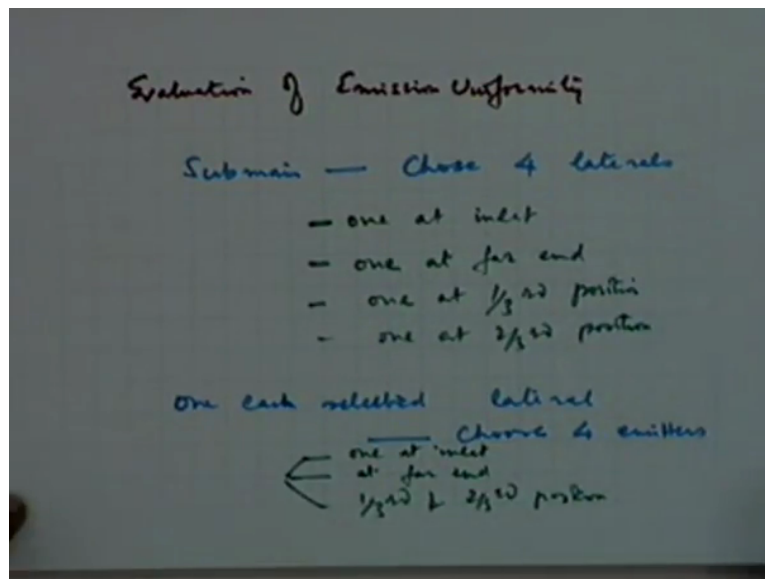 Evaluation of Emission Uniformity
Submain — Chose 4 laterals
— one at inlet
— one at far end
— one at 1/3 rd position
- one at 2/3 rd position
One each selected lateral
— Choose 4 emitters
one at inlet
at far end
1/3 rd & 2/3 rd position